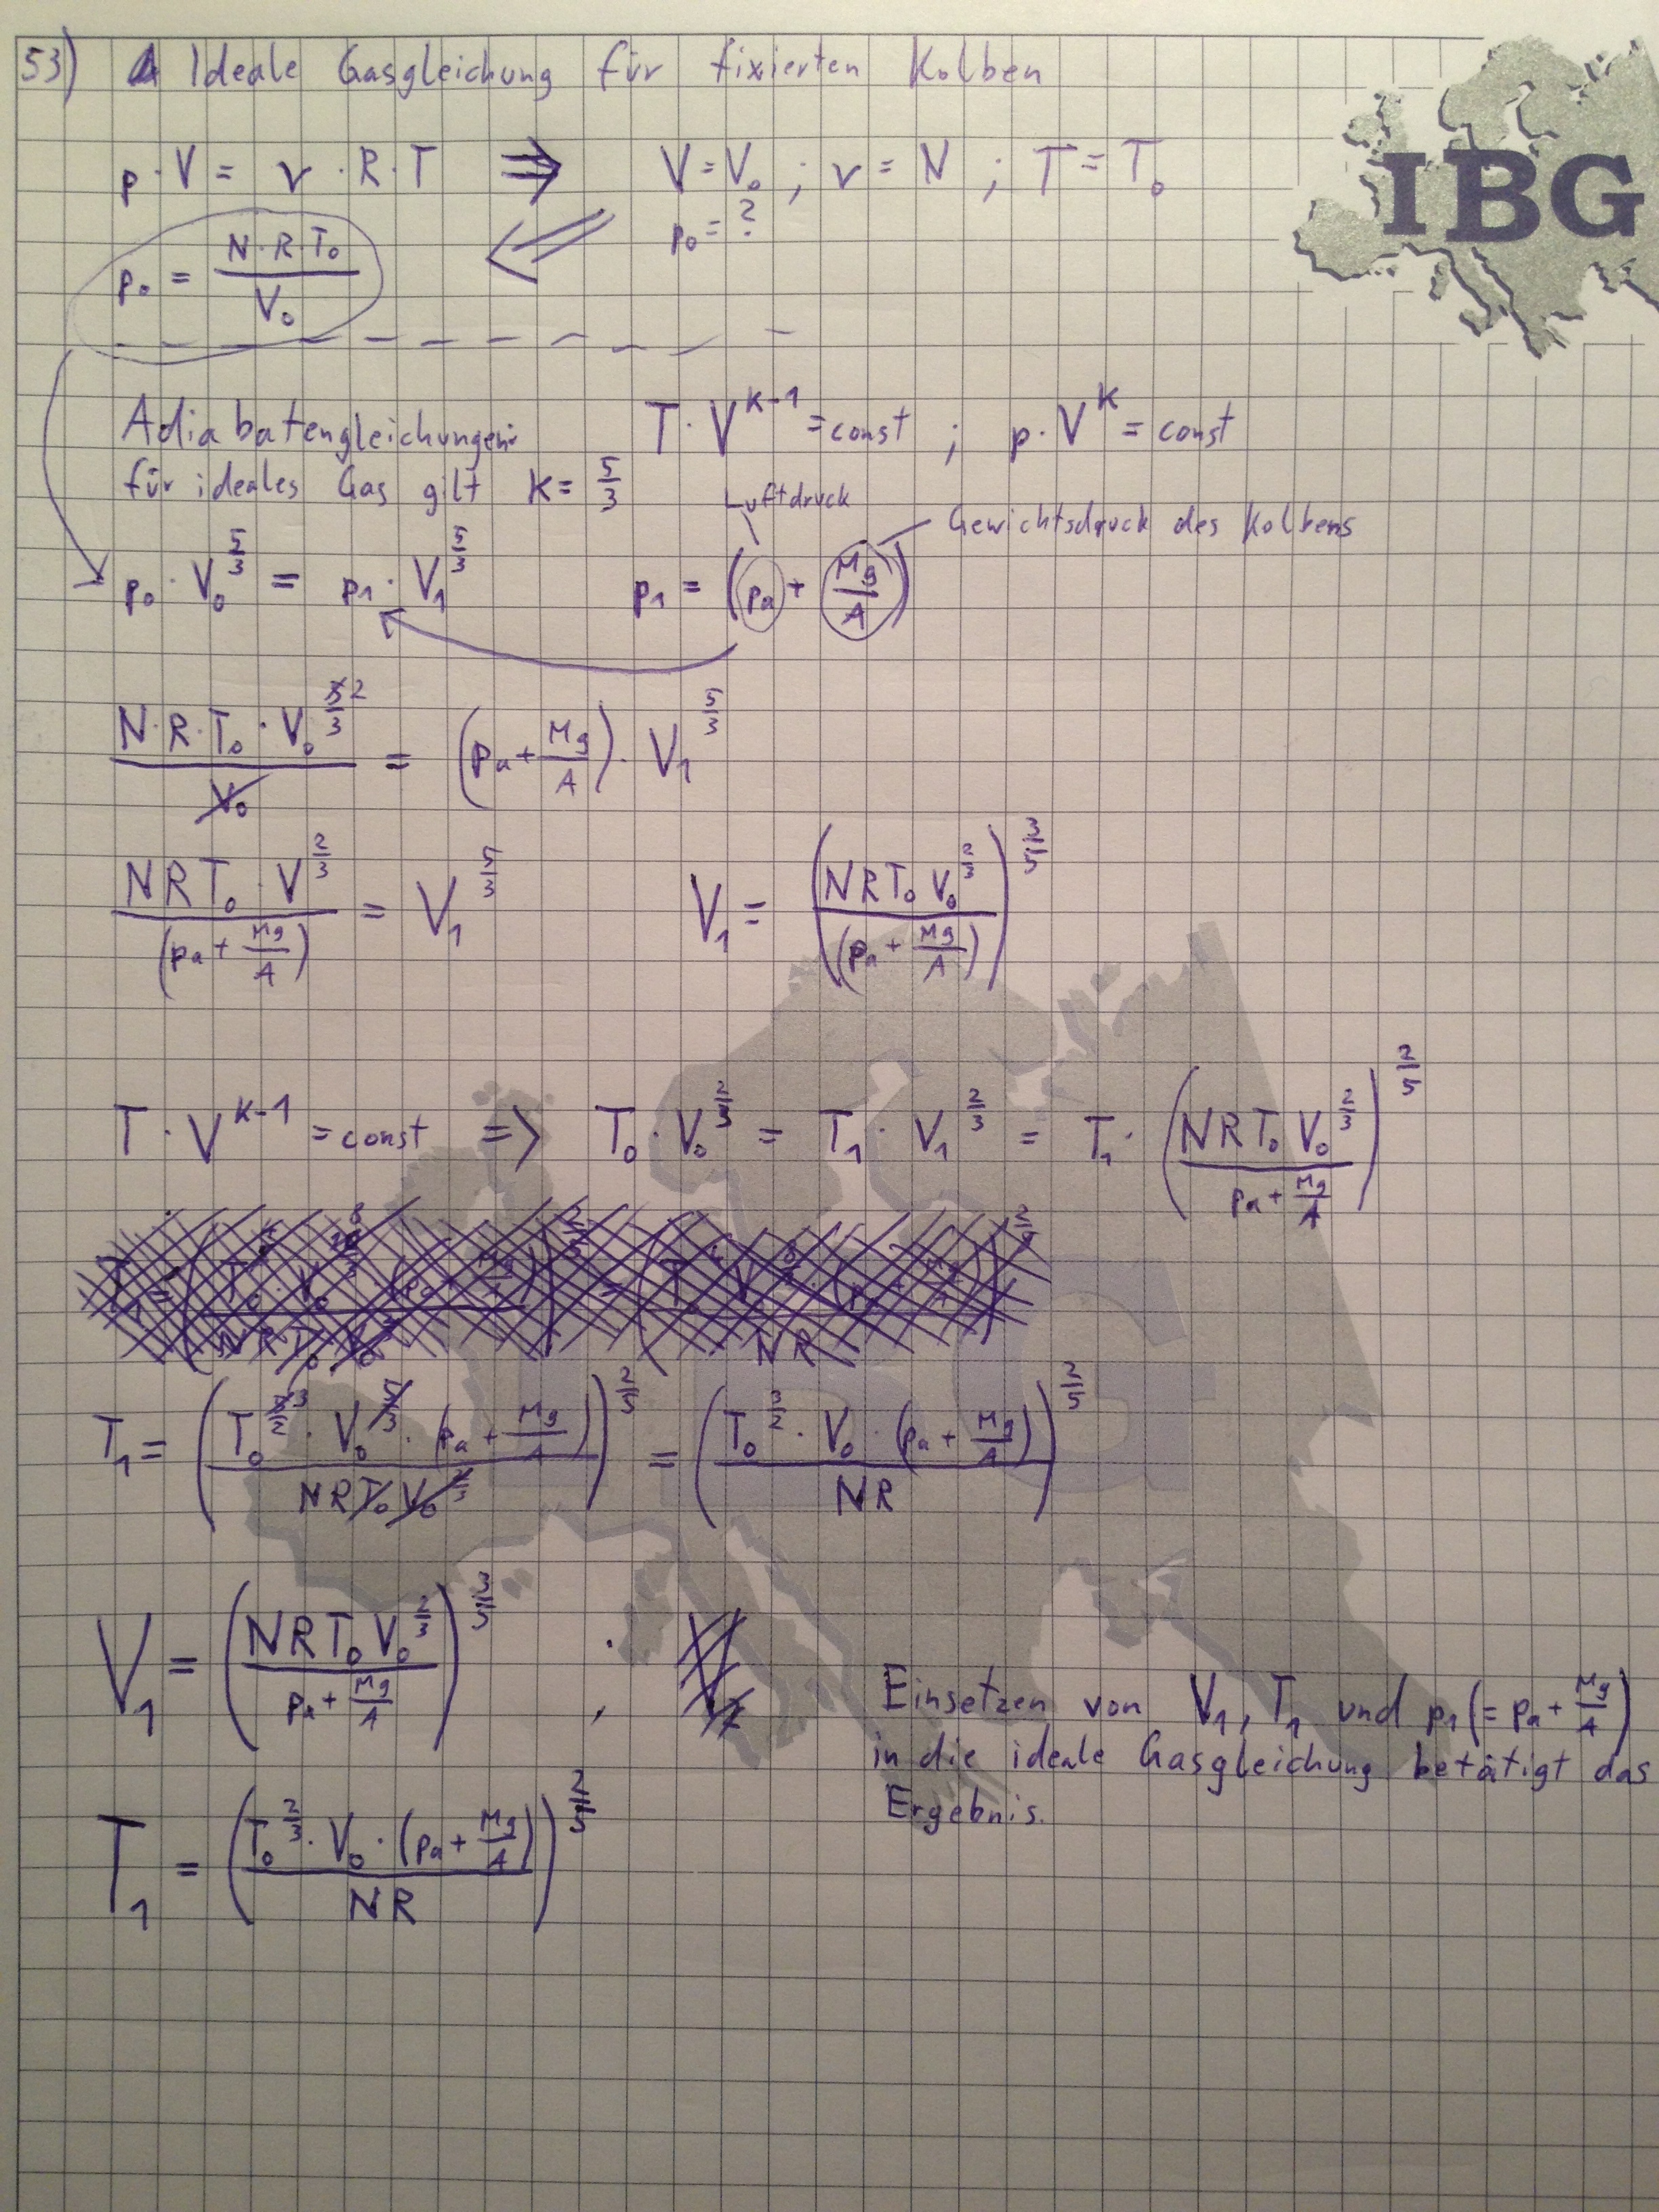 53) Ideale Gasgleichung für fixierten Kolben
IBG
p · V = ν · R · T ⇒ V = V₀ ; ν = N ; T = T₀
p₀ = ?
p₀ = N·R·T₀ / V₀ ⇐
Adiabatengleichungen: T · V^(κ-1) = const ; p · V^κ = const
für ideales Gas gilt κ = 5/3
Luftdruck
Gewichtsdruck des Kolbens
p₀ · V₀^(5/3) = p₁ · V₁^(5/3) p₁ = (pa + Mg/A)
N·R·T₀ · V₀^(2/3) / V₀ = (pa + Mg/A) · V₁^(5/3)
NRT₀ V^(2/3) / (pa + Mg/A) = V₁^(5/3) V₁ = (NRT₀ V₀^(2/3) / (pa + Mg/A))^(3/5)
T · V^(κ-1) = const => T₀ · V₀^(2/3) = T₁ · V₁^(2/3) = T₁ · (NRT₀ V₀^(2/3) / (pa + Mg/A))^(2/5)
T₁ = (T₀^(3/2) · V₀^(5/3) · (pa + Mg/A) / NRT₀V₀^(2/3))^(2/5) = (T₀^(3/2) · V₀ · (pa + Mg/A) / NR)^(2/5)
V₁ = (NRT₀V₀^(2/3) / (pa + Mg/A))^(3/5) ,
Einsetzen von V₁, T₁ und p₁(= pa + Mg/A)
in die ideale Gasgleichung betätigt das
Ergebnis.
T₁ = (T₀^(2/3) · V₀ · (pa + Mg/A) / NR)^(2/5)